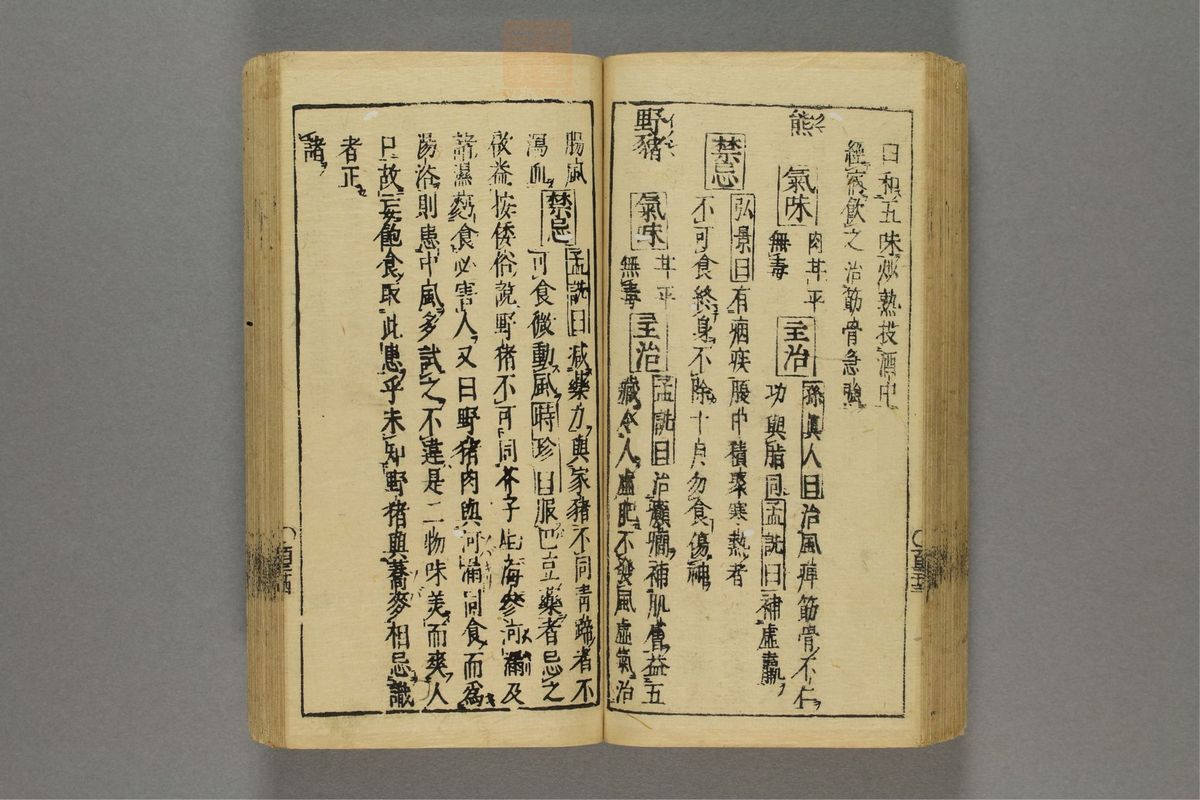 日和五味炒熟投酒中
經宿飲之 治筋骨急強
熊
クマ
氣味
肉甘平
無毒
主治
孫眞人曰治風痺筋骨不仁
功與脂同孟詵曰補虛羸
禁忌
弘景曰有痼疾腹中積聚寒熱者
不可食終身不除十月勿食傷神
野豬
氣味
甘平
無毒
主治
孟詵曰治癲癇補肌膚益五
臟令人虛肥不發風虛氣治
腸風
瀉血
禁忌
孟詵曰減藥力與家豬不同青蹄者不
可食微動風時珍曰服巴豆藥者忌之
按倭俗說野猪不可同芥子生海參河漏及
諸濕麪食必害人又曰野猪肉與河漏同食而爲
湯浴則患中風多試之不違是二物味美而爽人
口故妄飽食取此患乎未知野猪與蕎麥相忌識
者正
諸